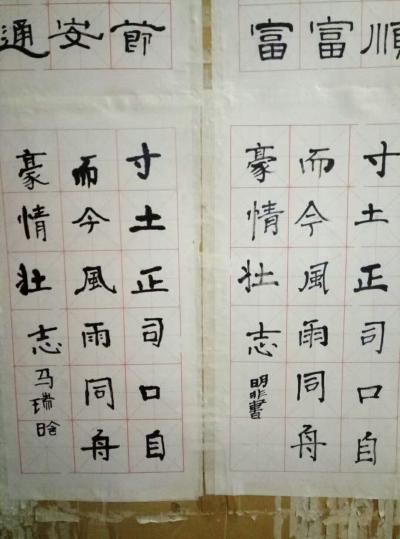 順
富
富
節
安
通
寸土正司口自
而今風雨同舟
豪情壯志
明非書
寸土正司口自
而今風雨同舟
豪情壯志
马瑞晗